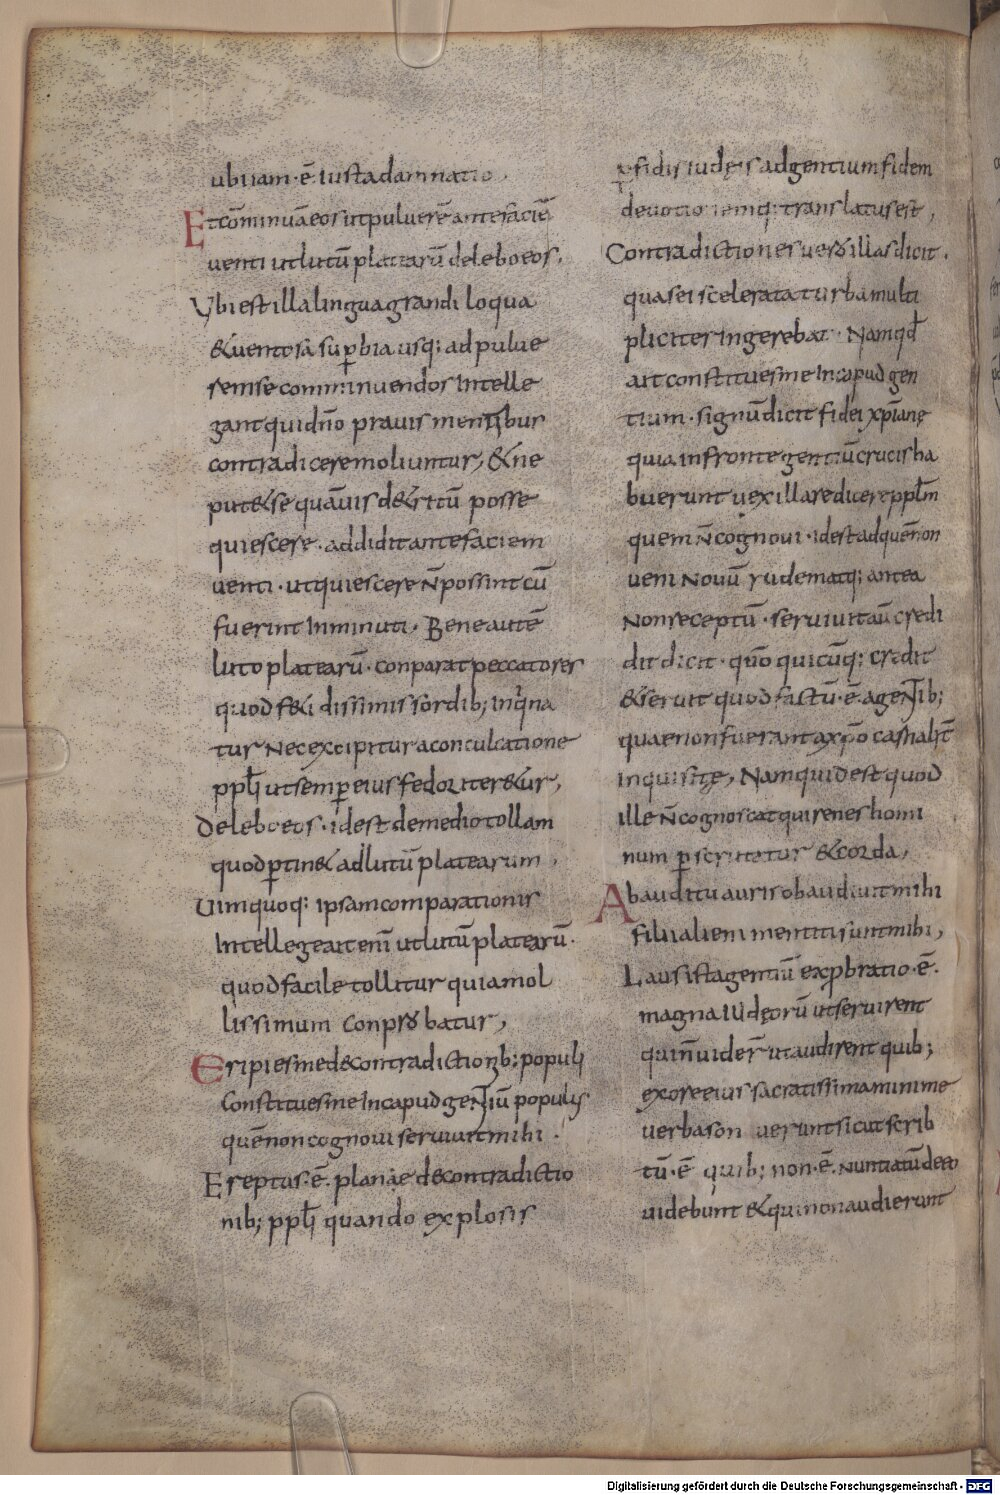 ubi iam · ē · iusta damnatio ·
Et cōminuā eos ut pulverē ante faciē
venti ut lutū platearū delebo eos ·
Ubi est illa lingua grandiloqua
& ventosa suꝑbia usq; ad pulve
rem se comminuendos intelle
gant qui dn̄o pravis mentibus
contradicere moliuntur, & ne
put& se quāvis d&ritū posse
quiescere · addidit ante faciem
venti · ut quiescere n̄ possint cū
fuerint inminuti · Bene autē
luto platearū · conparat peccatores
quod f&idissimis sordib; inquina
tur nec excipitur a conculcatione
ppl̄i ut semꝑ eius fedor iter&ur,
Delebo eos · id est de medio tollam
quod ꝑtin& ad lutū platearum ·
Vim quoq: ipsam comparationis
intellege ait enī ut lutū platearū ·
quod facile tollitur quia mol
lissimum conprobatur,
Eripies me de contradictionib; populi
Constitues me in capud gentiū populus
quē non cognovi servivit mihi ·
Ereptus · ē · plane de contradictio
nib; ppl̄i quando explosis
ꝑfidis iudęis ad gentium fidem
devotionemq; translatus est,
Contradictiones vero illas dicit ·
quas ei scelerata turba multi
pliciter ingerebat · Namqd̄
ait constitues me in capud gen
tium · signū dicit fidei xp̄ianę
quia in fronte gentiū crucis ha
buerunt vexilla redicere ppl̄m
quem n̄ cognovi · id est ad quē non
veni novū rudem atq; antea
non receptū · servivit aū credi
dit dicit · qn̄o quicūq; credit
& servit quod factū · ē · a gentib;
quae non fuerant a xp̄o
inquisitę, Nam quid est quod
ille n̄ cognoscat qui renes homi
num ꝑscrutatur & corda,
Ab auditu auris obaudivit mihi
filii alieni mentiti sunt mihi,
Laus ista gentiū exprobratio · ē ·
magna iudęorū ut servirent
qui n̄ vider̄ ut audirent quib;
ex ore eius sacratissima minime
verba sonuerunt sicut scrib
tū · ē · quib; non · ē · nuntiatū de eo
videbunt & qui non audierunt
Digitalisierung gefördert durch die Deutsche Forschungsgemeinschaft - DFG